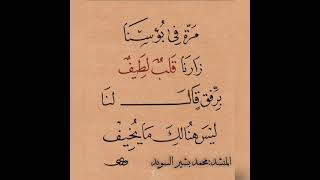 مَرَّة فِي بُؤْسِنَا
زَارنَا قَلبٌ لَطِيفٌ
بِرِفقٍ قَالَ لنَا
لَيْسَ هُنَالِكَ مَا يُخِيفُ
المنشد: محمد بشير السويد